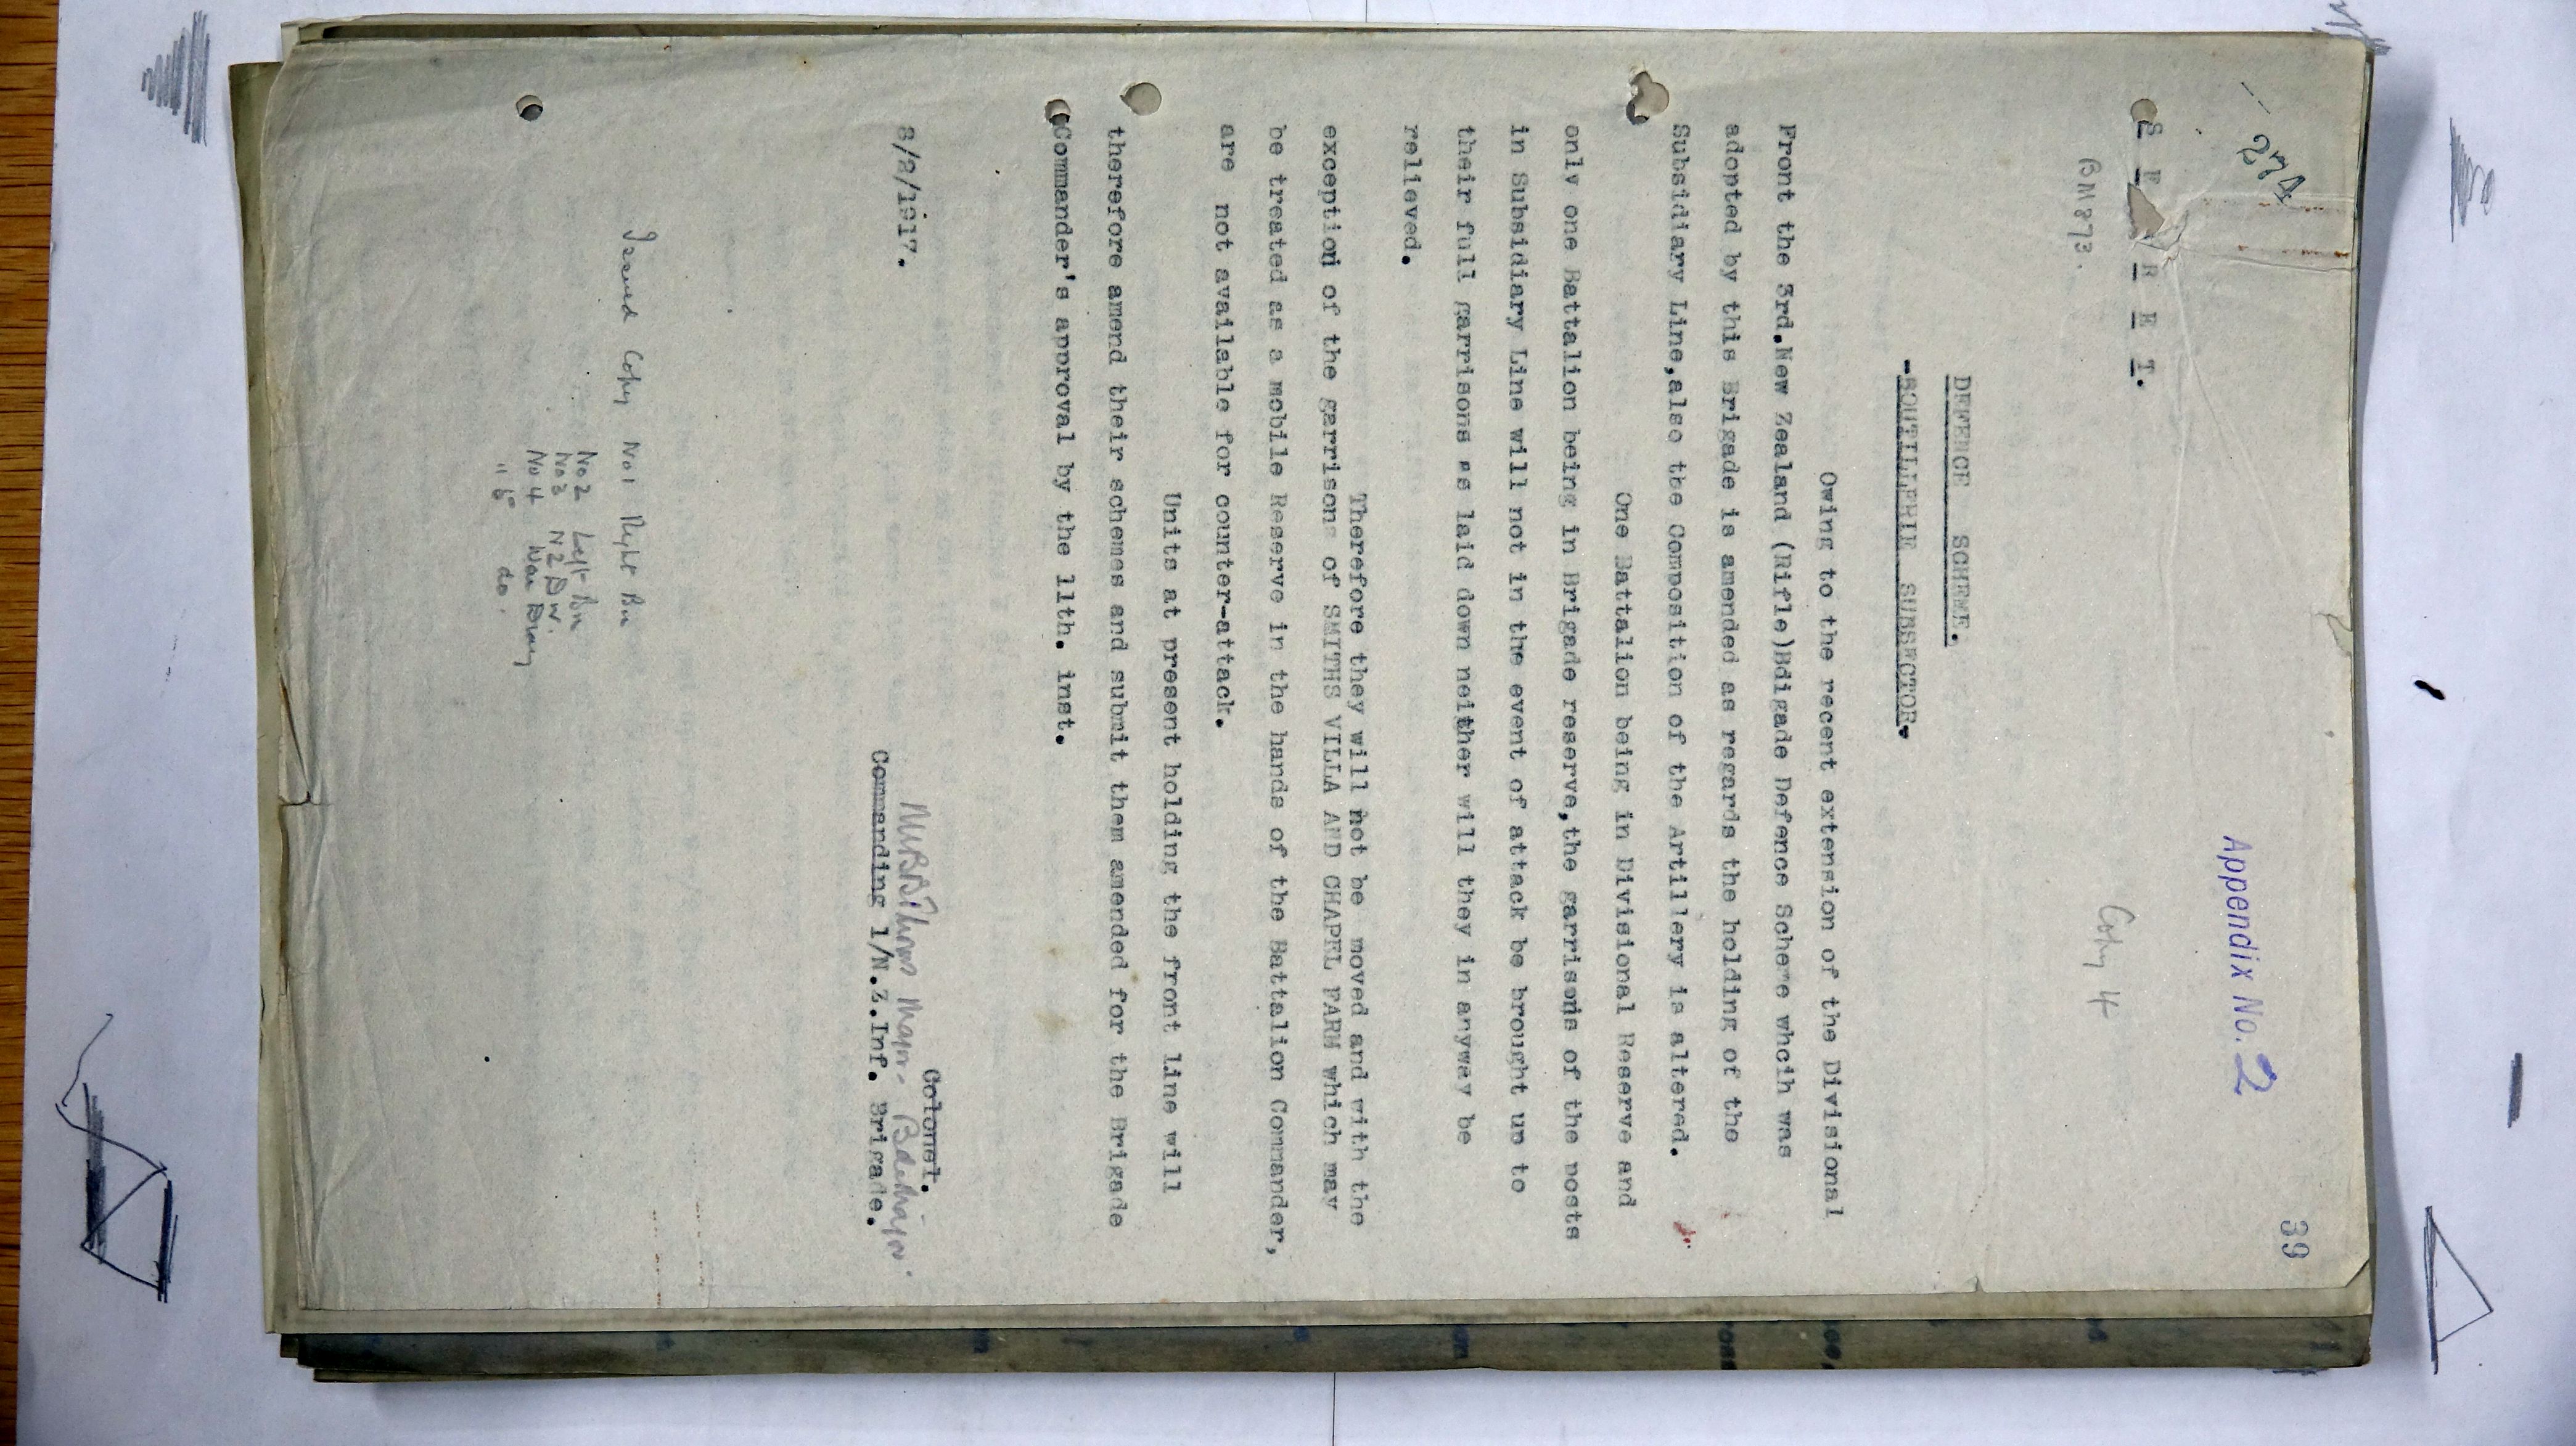 39
Appendix No. 2
S E R E T.
BM873.
Copy 4
DEFENCE SCHEME.
-BOUTILLERIE SUBSECTOR.
Owing to the recent extension of the Divisional
Front the 3rd.New Zealand (Rifle)Bdigade Defence Scheme whcih was
adopted by this Brigade is amended as regards the holding of the
Subsidiary Line,also the Composition of the Artillery is altered.
One Battalion being in Divisional Reserve and
only one Battalion being in Brigade reserve,the garrisons of the posts
in Subsidiary Line will not in the event of attack be brought up to
their full garrisons as laid down neither will they in anyway be
relieved.
Therefore they will not be moved and with the
exception of the garrisons of SMITHS VILLA AND CHAPEL FARM which may
be treated as a mobile Reserve in the hands of the Battalion Commander,
are not available for counter-attack.
Units at present holding the front Line will
therefore amend their schemes and submit them amended for the Brigade
Commander's approval by the 11th. inst.
Colonel.
8/2/1917.
Major. Bde Major.
Commanding 1/N.Z.Inf. Brigade.
Issued Copy No 1 Right Bn
No 2 Left Bn
No 3 N Z D W.
No 4 War Diary
" 5 do.